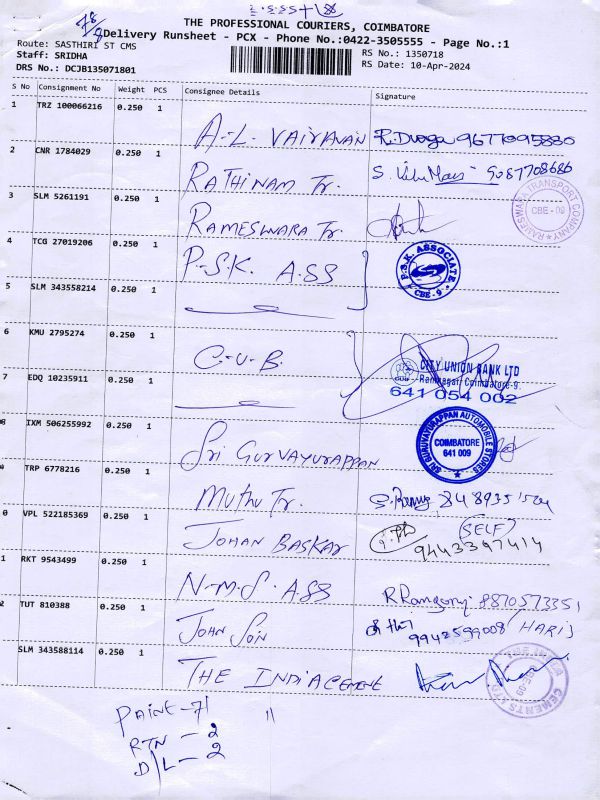 THE PROFESSIONAL COURIERS, COIMBATORE
Delivery Runsheet - PCX - Phone No.:0422-3505555 - Page No.:1
Route: SASTHIRI ST CMS
RS No.: 1350718
Staff: SRIDHA
RS Date: 10-Apr-2024
DRS No.: DCJB135071801
S No Consignment No Weight PCS Consignee Details Signature
1 TRZ 100066216 0.250 1 A-L. VAIRAVAN R.Durga 9677095880
2 CNR 1784029 0.250 1 RATHINAM Tr. S.
RASIESWARA TRANSPORT COMPANY CBE - 09
3 SLM 5261191 0.250 1 RAMESWARA Tr.
4 TCG 27019206 0.250 1 P-S.K. ASS
P.S.K. ASSOCIATE CBE-9
5 SLM 343558214 0.250 1
6 KMU 2795274 0.250 1 C-U-B.
CITY UNION BANK LTD
Ramnagar Coimbatore-9.
641 054 002
7 EDQ 10235911 0.250 1
8 IXM 506255992 0.250 1 Sri GURVAYURAPPAN
SRI GURUVAYURAPPAN AUTOMOBILE STORES COIMBATORE 641 009
TRP 6778216 0.250 1 MUTHU Tr.
0 VPL 522185369 0.250 1 JOHAN BASKAR (SELF)
9443397414
1 RKT 9543499 0.250 1 N-M-S. ASS R Rangaraj 8870573351
2 TUT 810388 0.250 1 JOHN SON 9942599008 / HARIJ
SLM 343588114 0.250 1 THE INDIACEMENT
CEMENTS LTD
PAINE-71 11
RTN - 2
D/L - 2